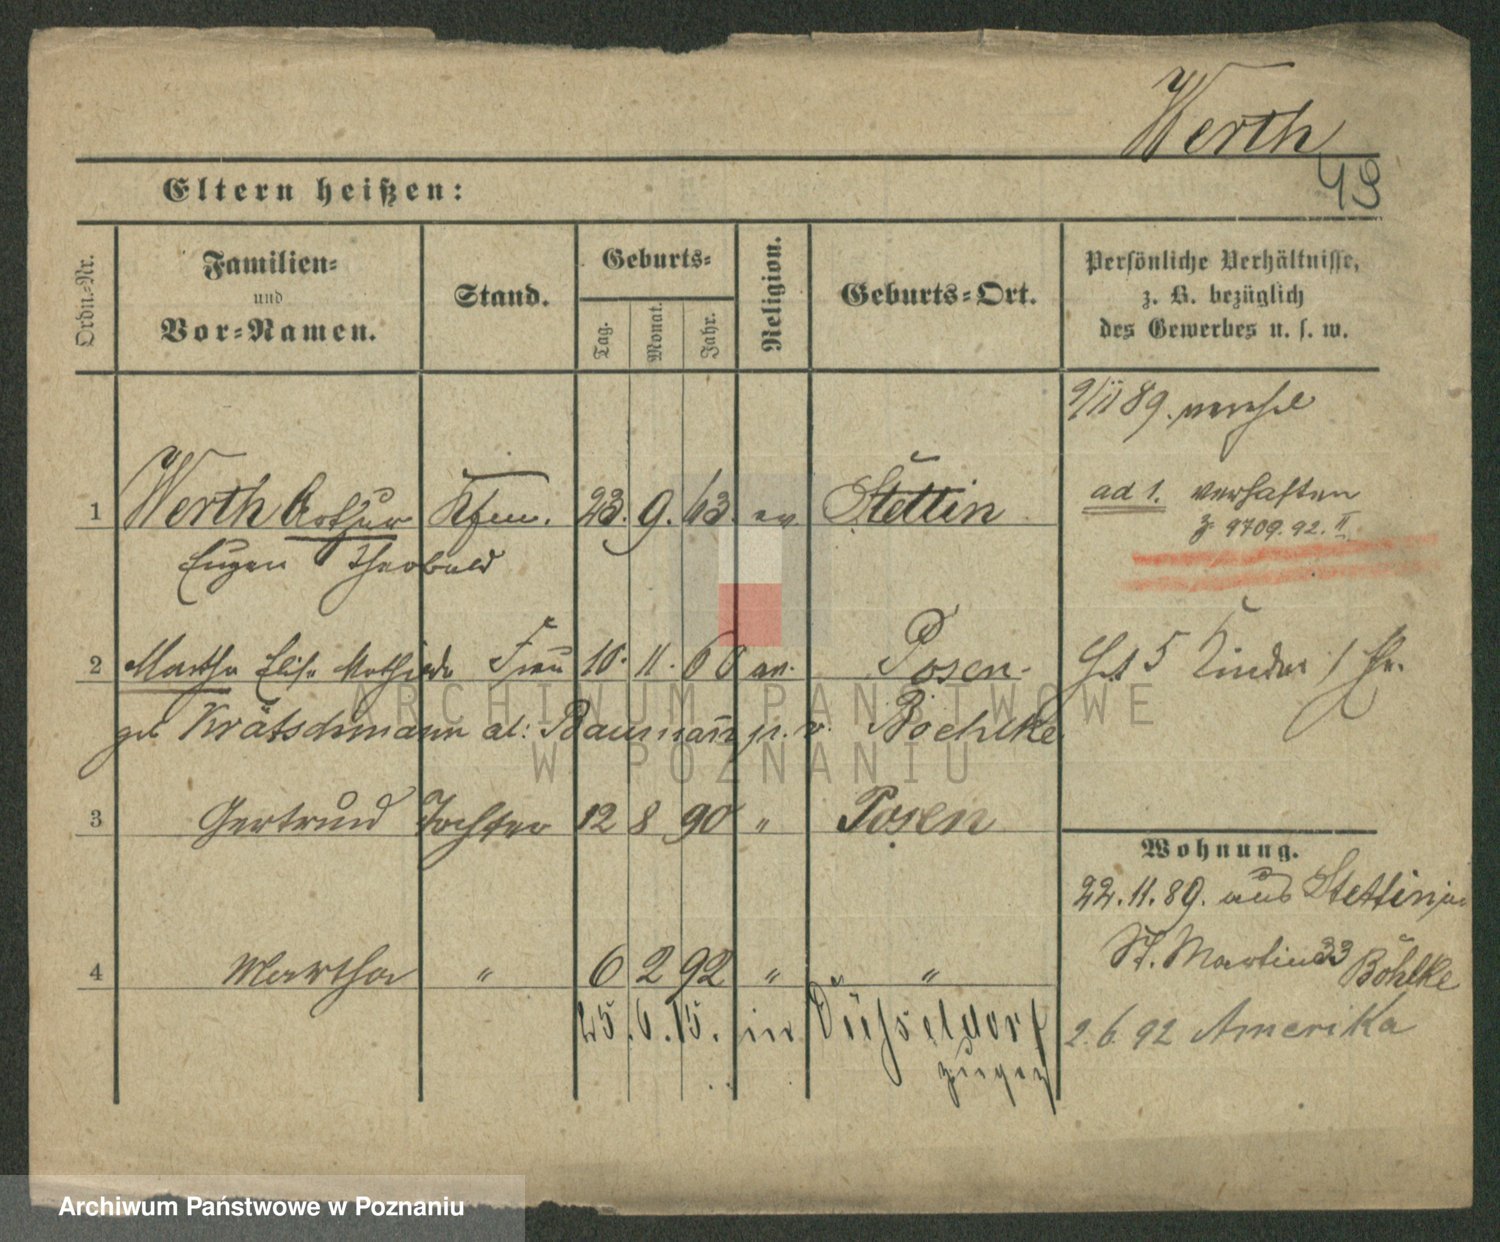 Werth
43
Eltern heißen:
Ordn.-Nr.
Familien-
und
Vor-Namen.
Stand.
Geburts-
Tag.
Monat.
Jahr.
Religion.
Geburts-Ort.
Persönliche Verhältnisse,
z. B. bezüglich
des Gewerbes u. s. w.
9/11 89.
1 Werth Arthur Kfm. 23. 9. 63. ev Stettin
Eugen Theobald
ad 1. verhaften
9709. 92. II
2 Martha Elise Mathilde Frau 10. 11. 60 ev. Posen.
geb Krätschmann al: Baumann p. v. Boehlke
Hat 5 Kinder
3 Gertrud Tochter 12 8 90 " Posen
4 Martha " 6 2 92 " "
25. 6. 15. in Düsseldorf
zugez
Wohnung.
22. 11. 89. aus Stettin
St. Martin 33 Böhlke
2. 6. 92 Amerika
ARCHIWUM PAŃSTWOWE
W POZNANIU
Archiwum Państwowe w Poznaniu